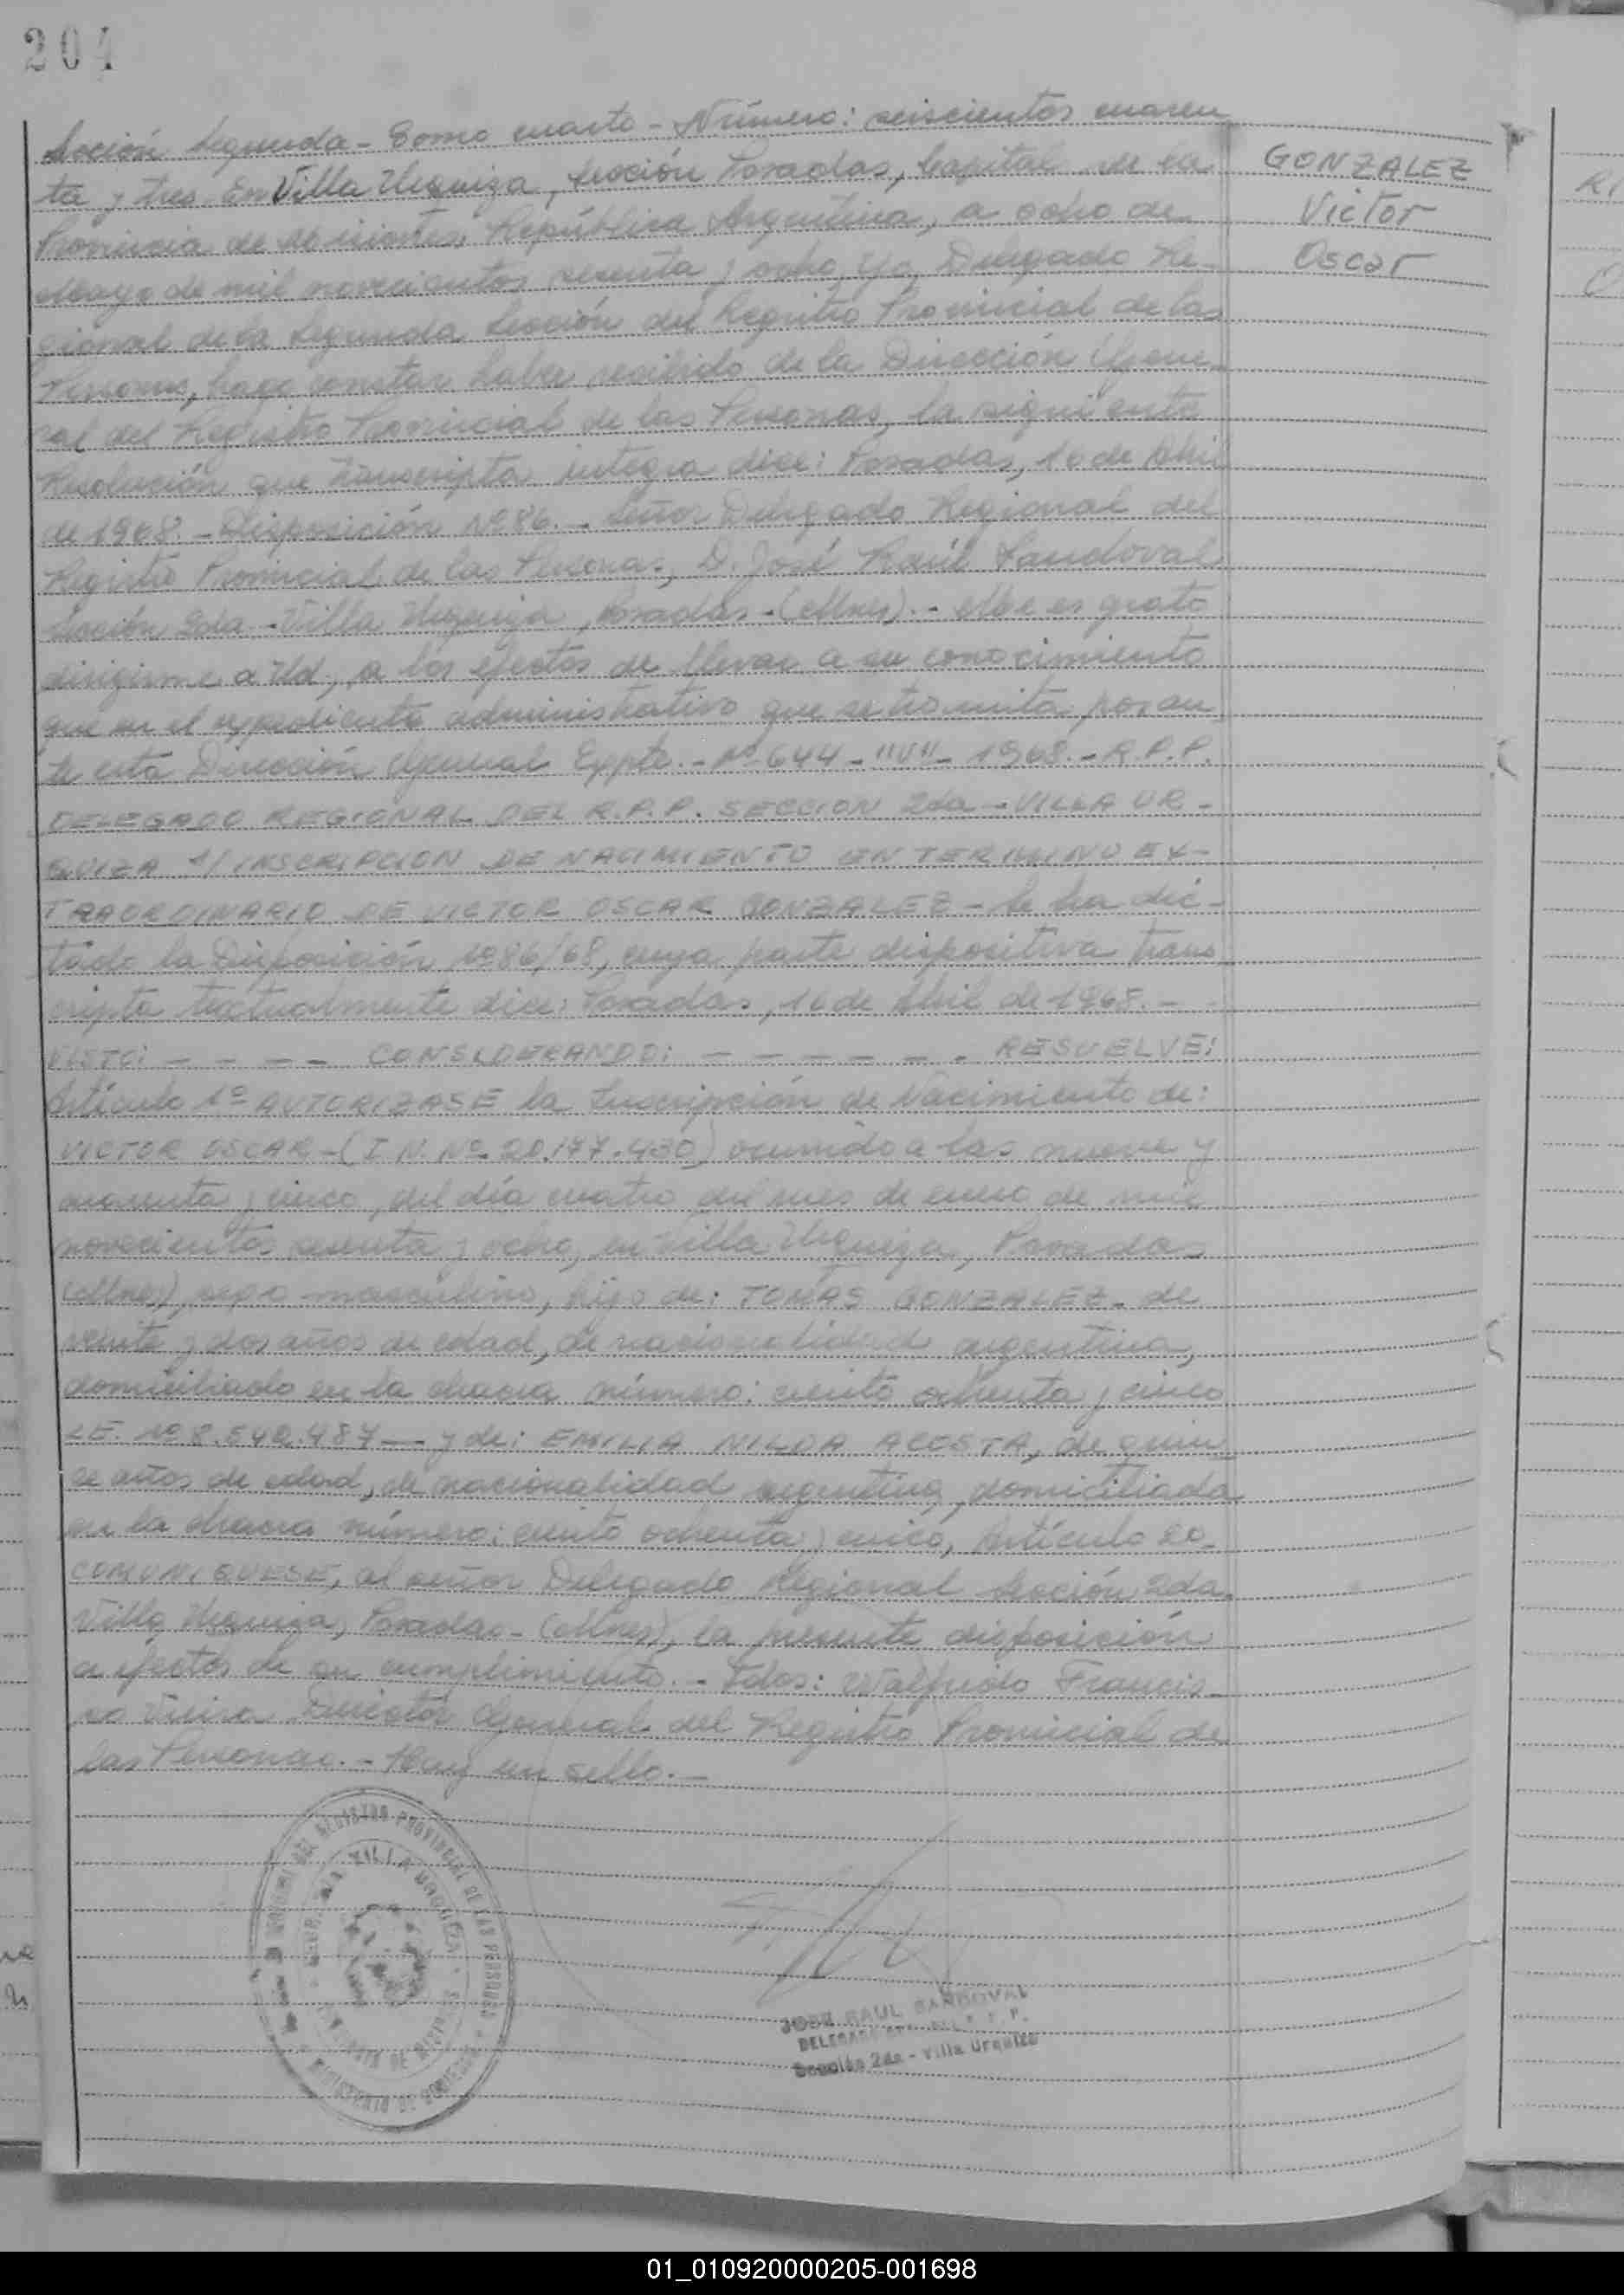 204
Sección Segunda - Tomo cuarto - Número: seiscientos cuaren
ta y tres. En Villa Urquiza, Sección Posadas, Capital de la
Provincia de Misiones, República Argentina, a ocho de
Mayo de mil novecientos sesenta y ocho, Yo, Delegado Re-
gional de la Segunda Sección del Registro Provincial de las
Personas, hago constar haber recibido de la Dirección Gene-
ral del Registro Provincial de las Personas, la siguiente
Resolución que transcripta integra dice: Posadas, 16 de Abril
de 1968. - Disposición Nº 86. - Señor Delegado Regional del
Registro Provincial de las Personas, D. José Raúl Sandoval
Sección 2da - Villa Urquiza, Posadas - (Mnes). - Me es grato
dirigirme a Ud, a los efectos de llevar a su conocimiento
que en el expediente administrativo que se tramita por an
te esta Dirección General Expte. - Nº 644 - "V" - 1968. - R.P.P.
DELEGADO REGIONAL DEL R.P.P. SECCION 2da - VILLA UR-
QUIZA S/ INSCRIPCION DE NACIMIENTO EN TERMINO EX-
TRAORDINARIO DE VICTOR OSCAR GONZALEZ - Se ha dic-
tado la Disposición Nº 86/68, cuya parte dispositiva trans
cripta textualmente dice: Posadas, 16 de Abril de 1968. -
VISTO: - - - - CONSIDERANDO: - - - - - - RESUELVE:
Artículo 1º AUTORIZASE la Inscripción de Nacimiento de:
VICTOR OSCAR - (I.N. Nº. 20.177.430) ocurrido a las nueve y
cuarenta y cinco, del día cuatro del mes de enero de mil
novecientos sesenta y ocho, en Villa Urquiza, Posadas
(Mnes), sexo masculino, hijo de: TOMAS GONZALEZ - de
veinte y dos años de edad, de nacionalidad argentina,
domiciliado en la chacra número: ciento ochenta y cinco
LE. Nº 8.540.487 - y de: EMILIA NILDA ACOSTA, de quin
ce años de edad, de nacionalidad argentina, domiciliada
en la chacra número: ciento ochenta y cinco, Artículo 2º -
COMUNIQUESE, al señor Delegado Regional Sección 2da.
Villa Urquiza, Posadas - (Mnes), la presente disposición
a efectos de su cumplimiento. - Fdos: Walfrido Francis-
co Vieira Director General del Registro Provincial de
las Personas. - Hay un sello. -
GONZALEZ
Victor
Oscar
REGISTRO PROVINCIAL DE LAS PERSONAS
VILLA URQUIZA
MINISTERIO DE GOBIERNO
JOSE RAUL SANDOVAL
DELEGADO R. P. P.
Sección 2da - Villa Urquiza
01_010920000205-001698